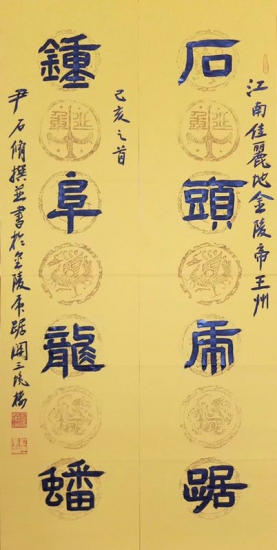 江南佳麗地金陵帝王州
石頭虎踞
己亥之首
鍾阜龍蟠
尹石脩撰并書於金陵虎踞關三悅樓